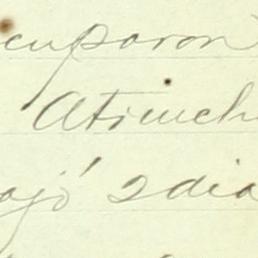 cuparon
Atrinch
ajó 2 dia